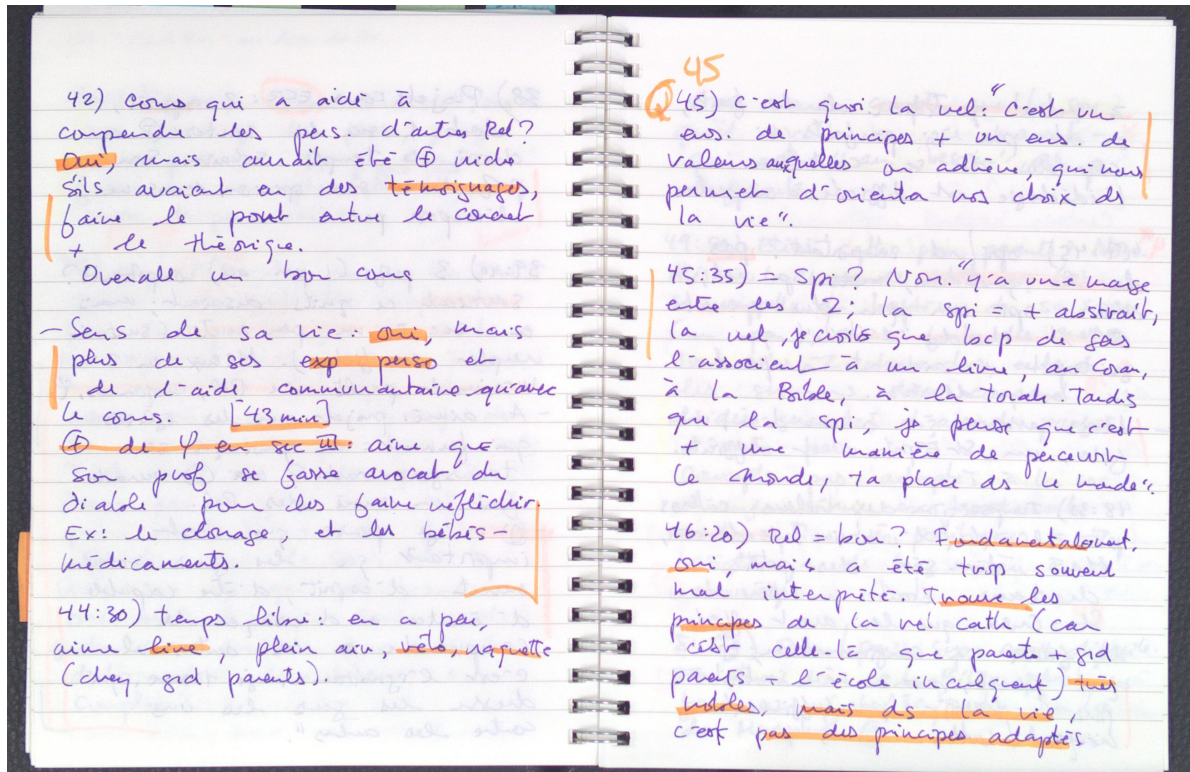 42) Cours qui a aidé à
comprendre les pers d'autres Rel?
Oui, mais aurait été ⊕ riche
s'ils avaient eu des témoignages,
faire le pont entre le concret
+ le théorique.
Overall un bon cours
– Sens de sa vie: oui, mais
plus de ses exp perso et
de l'aide communautaire qu'avec
le cours. [43 min]
⊕ de φ en sec III: aime que
son prof se fasse avocat du
diable pour les faire réfléchir.
Ex: le clonage, et les bébés-
médicaments.
44:30) temps libre: en a peu,
aime livre, plein air, vélo, raquette
(chez grd parents).
45
Q 45) C'est quoi la rel: "C'est un
ens. de principes + un ens. de
valeurs auxquelles on adhère, qui nous
permet d'orienter nos choix ds
la vie".
45:35) = Spi? Non. "Y'a une marge
entre les 2; la spi = + abstrait,
la rel, je crois que bcp de gens
l'associent à un livre, au Coran,
à la Bible, à la torah. Tandis
que la spi, je pense que c'est
+ une manière de percevoir
le monde, ta place ds le monde".
46:20) Rel = bon? Fondamentalement,
oui, mais a été trop souvent
mal interprété. Trouve les
principes de la rel cath (car
c'est celle-là que parents + grd
parents + l'école inculquent) très
nobles, mais ds la vie,
c'est pas des principes adaptés